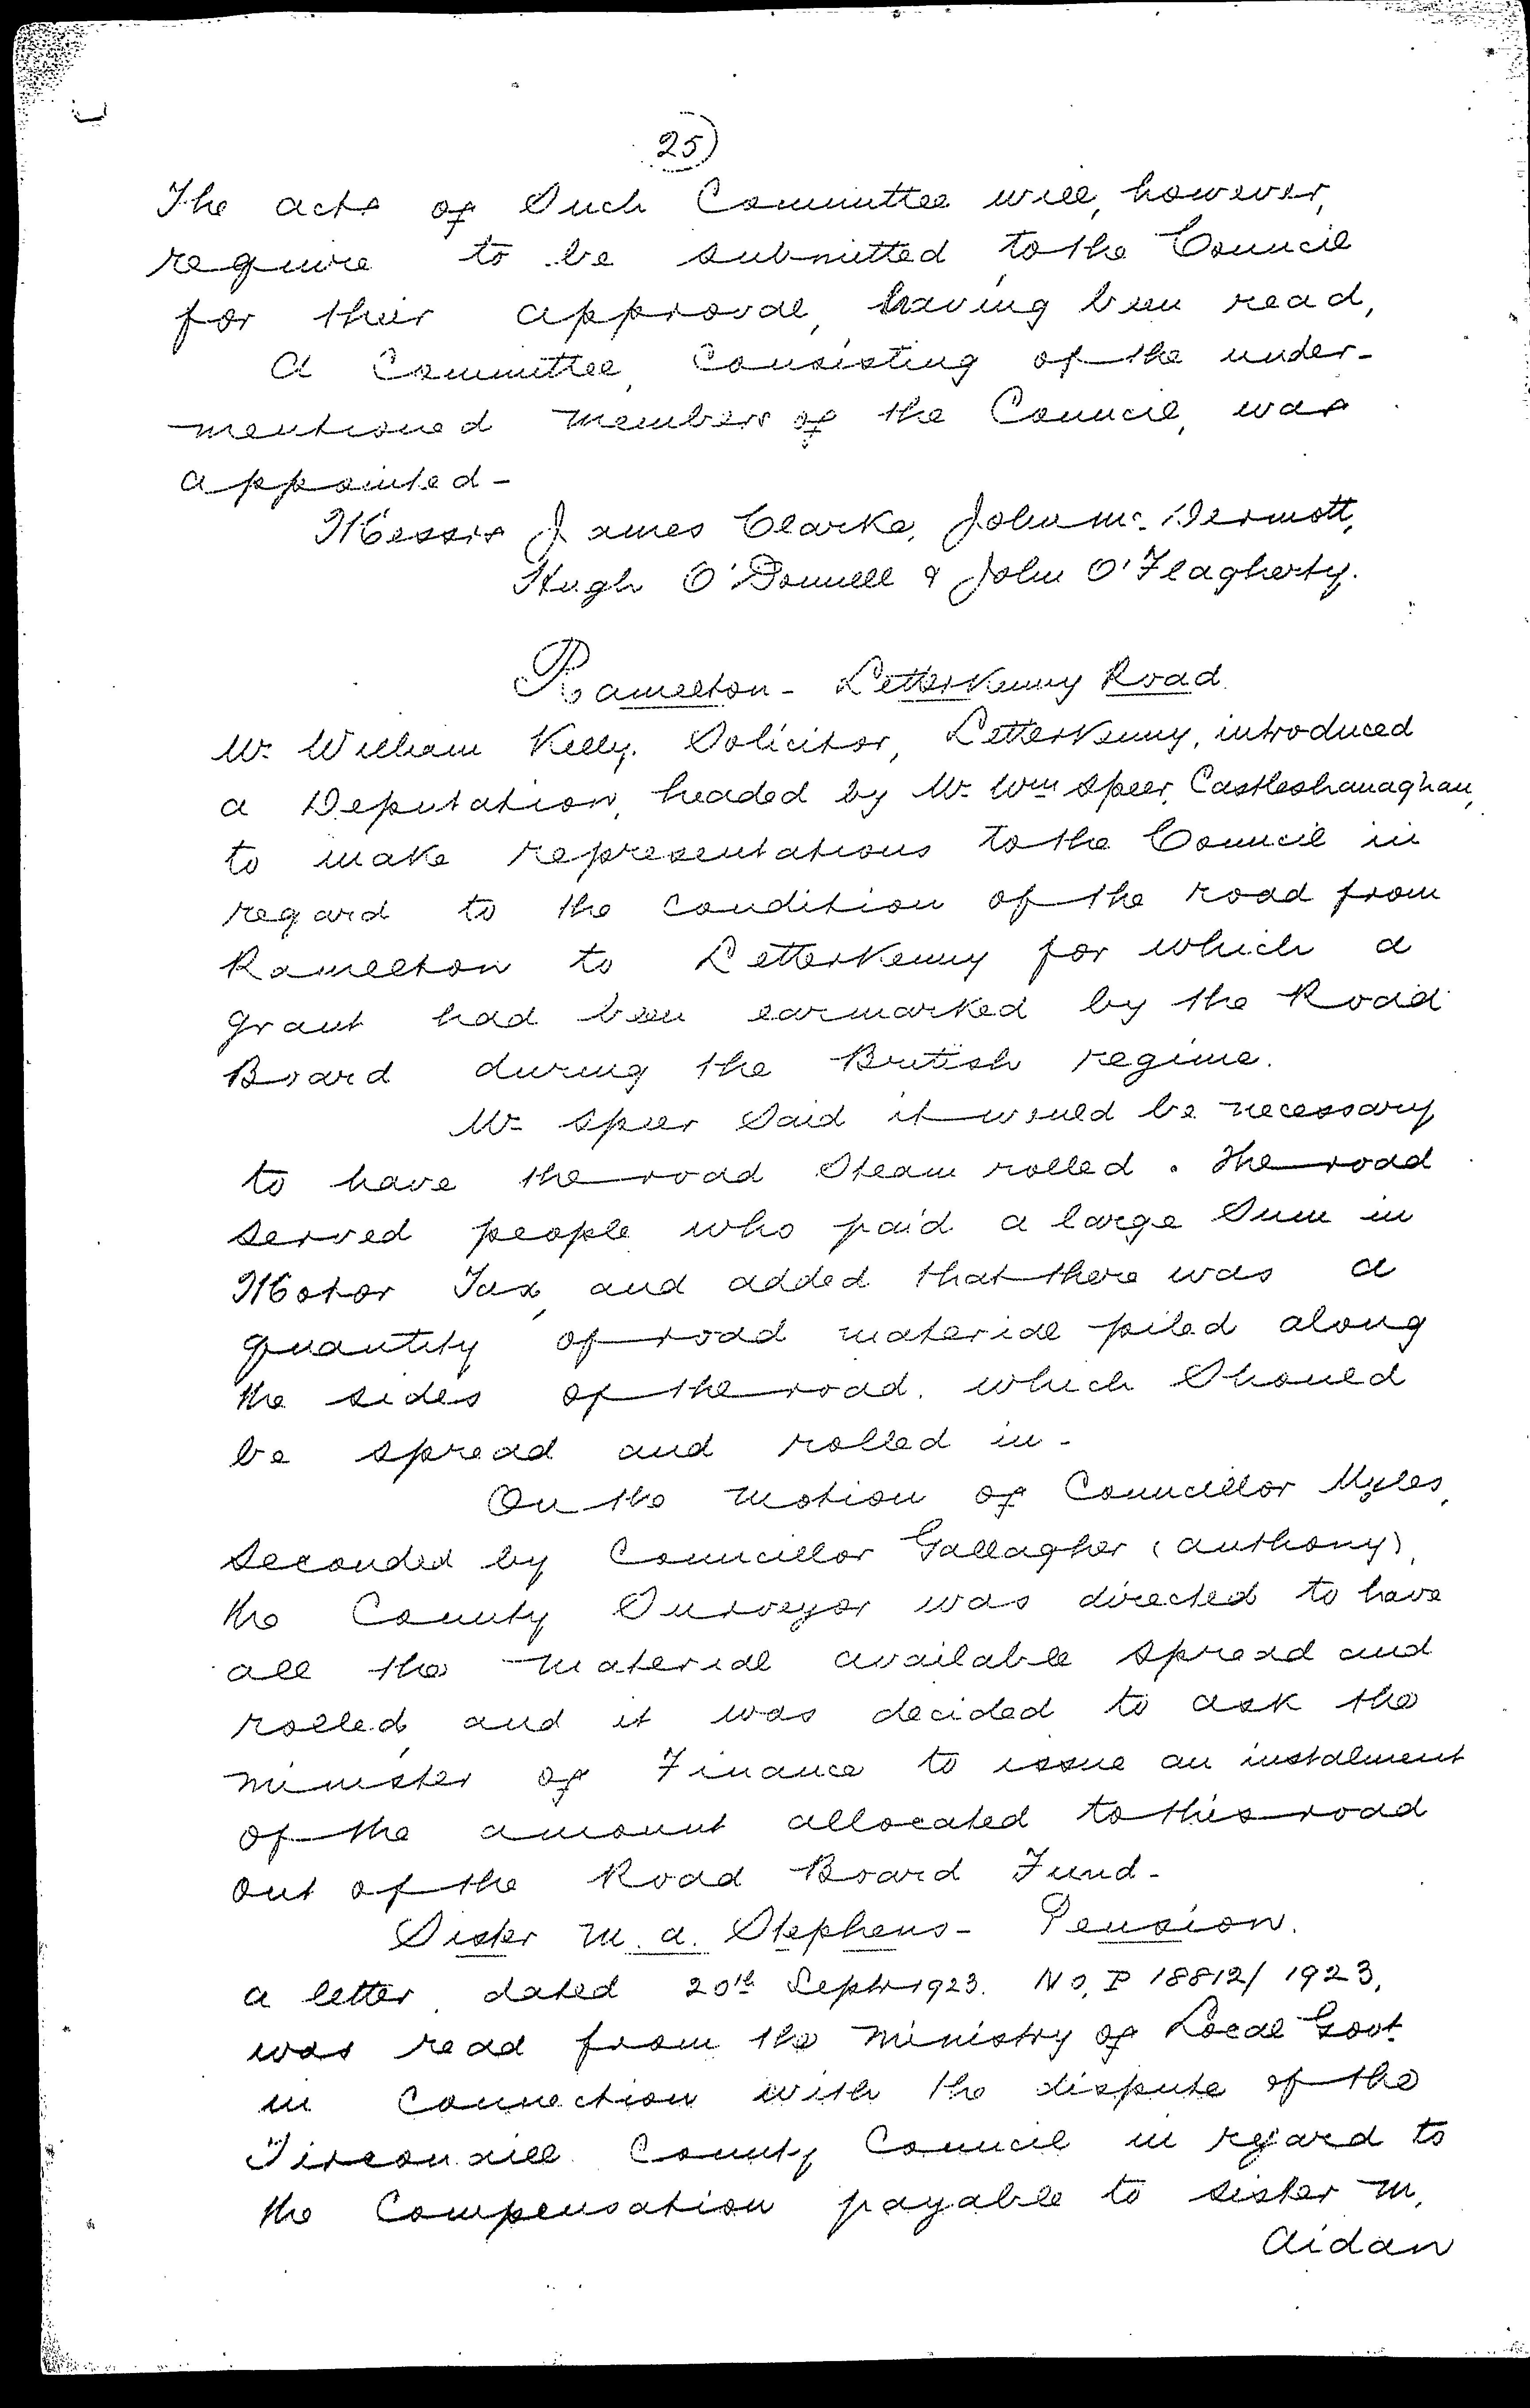 25)
The acts of Such Committee will, however,
require to be submitted to the Council
for their approval, having been read,
A Committee, Consisting of the under-
mentioned members of the Council, was
appointed-
Messrs James Clarke, John Mc. Dermott,
Hugh O'Donnell & John O'Flagherty.
Ramelton - Letterkenny Road
Mr. William Kelly. Solicitor, Letterkenny, introduced
a Deputation, headed by Mr. Wm Speer, Castleshanaghan,
to make representations to the Council in
regard to the condition of the road from
Ramelton to Letterkenny for which a
grant had been earmarked by the Road
Board during the British regime.
Mr. Speer Said it would be necessary
to have the road Steam rolled. The road
served people who paid a large Sum in
Motor Tax, and added that there was a
quantity of road material piled along
the sides of the road. which Should
be spread and rolled in-
On the motion of Councillor Myles,
Seconded by Councillor Gallagher (Anthony),
the County Surveyor was directed to have
all the material available spread and
rolled, and it was decided to ask the
Minister of Finance to issue an instalment
of the amount allocated to this road
out of the Road Board Fund-
Sister M. A. Stephens - Pension.
A letter, dated 20th Septr 1923. No. P 18812/1923,
was read from the Ministry of Local Govt.
in Connection with the dispute of the
Tirconaill County Council in regard to
the Compensation payable to Sister M.
Aidan